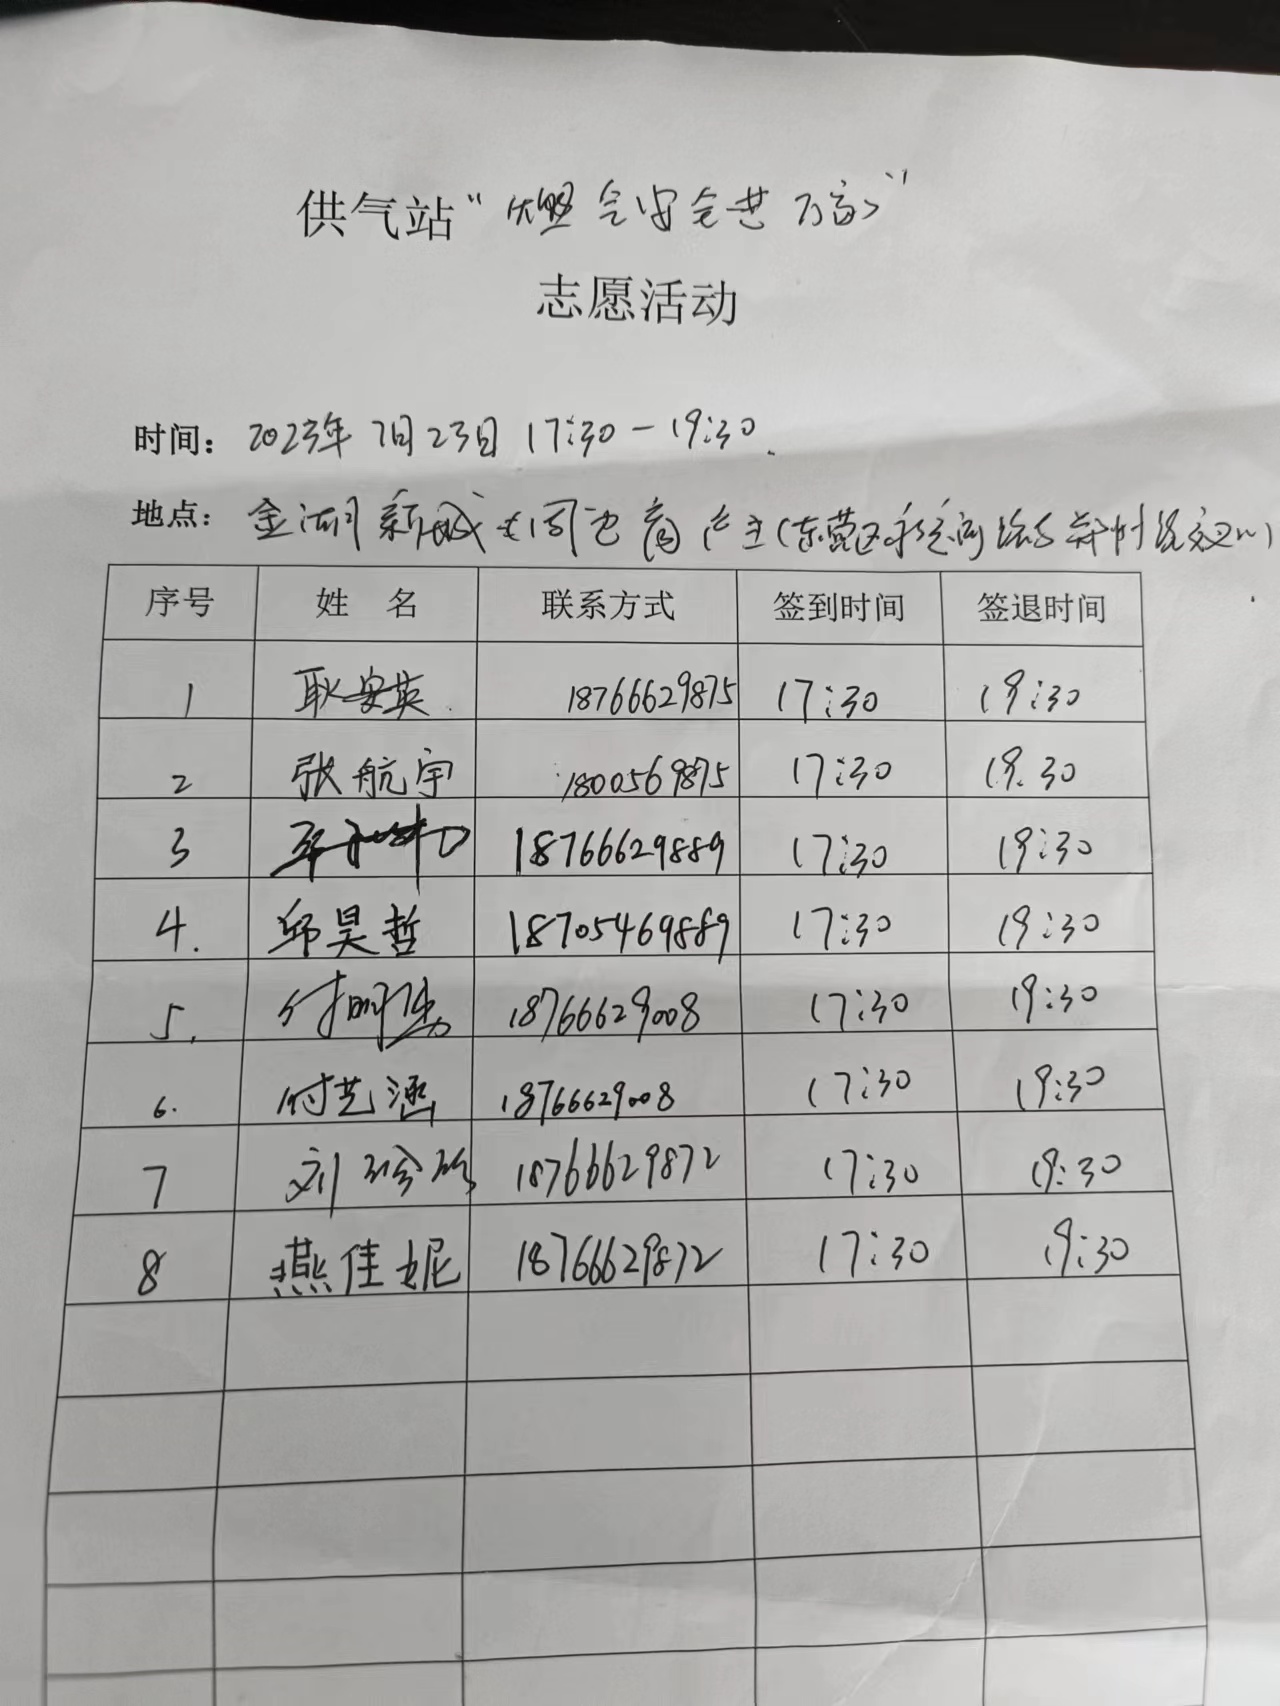 供气站“燃气安全进万家”
志愿活动
时间：2023年7月23日 17:30-19:30.
地点：金湖新城 (东营区 交叉口)
序号 姓名 联系方式 签到时间 签退时间
1 耿安英 18766629875 17:30 19:30
2 张航宇 1800569875 17:30 19.30
3 18766629889 17:30 19:30
4. 邱昊哲 18705469889 17:30 19:30
5. 付明 18766629008 17:30 19:30
6. 付艺涵 18766629008 17:30 19:30
7 刘 18766629872 17:30 19:30
8 燕佳妮 18766629872 17:30 19:30